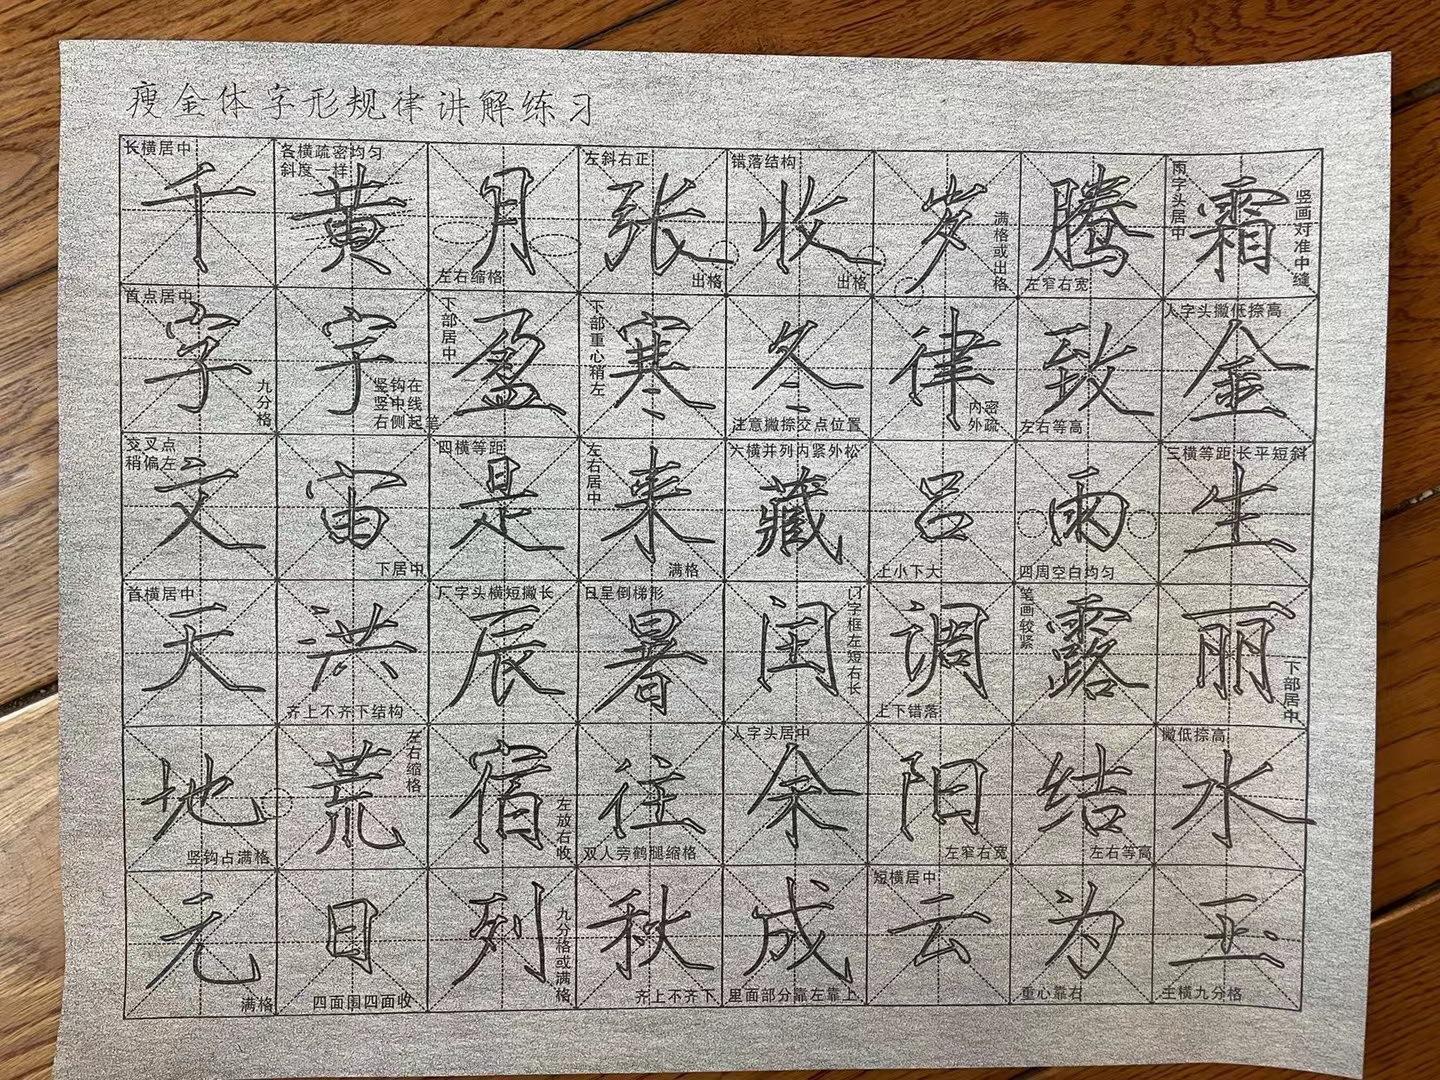 瘦金体字形规律讲解练习
长横居中
千
各横疏密均匀
斜度一样
黄
月
左右缩格
左斜右正
张
出格
错落结构
收
出格
岁
满格或出格
腾
左窄右宽
雨字头居中
霜
竖画对准中缝
首点居中
字
九分格
宇
竖钩在
竖中线
右侧起笔
下部居中
盈
下部重心稍左
寒
冬
注意撇捺交点位置
律
内密
外疏
致
左右等高
人字头撇低捺高
金
交叉点
稍偏左
文
宙
下居中
四横等距
是
左右居中
来
满格
六横并列内紧外松
藏
吕
上小下大
雨
四周空白均匀
三横等距长平短斜
生
首横居中
天
洪
齐上不齐下结构
厂字头横短撇长
辰
日呈倒梯形
暑
闰
门字框左短右长
调
上下错落
笔画较紧
露
丽
下部居中
地
竖钩占满格
荒
左右缩格
宿
左放右收
往
双人旁鹤腿缩格
人字头居中
余
阳
左窄右宽
结
左右等高
撇低捺高
水
元
满格
日
四面围四面收
列
九分格或满格
秋
齐上不齐下
成
里面部分靠左靠上
短横居中
云
为
重心靠右
玉
主横九分格